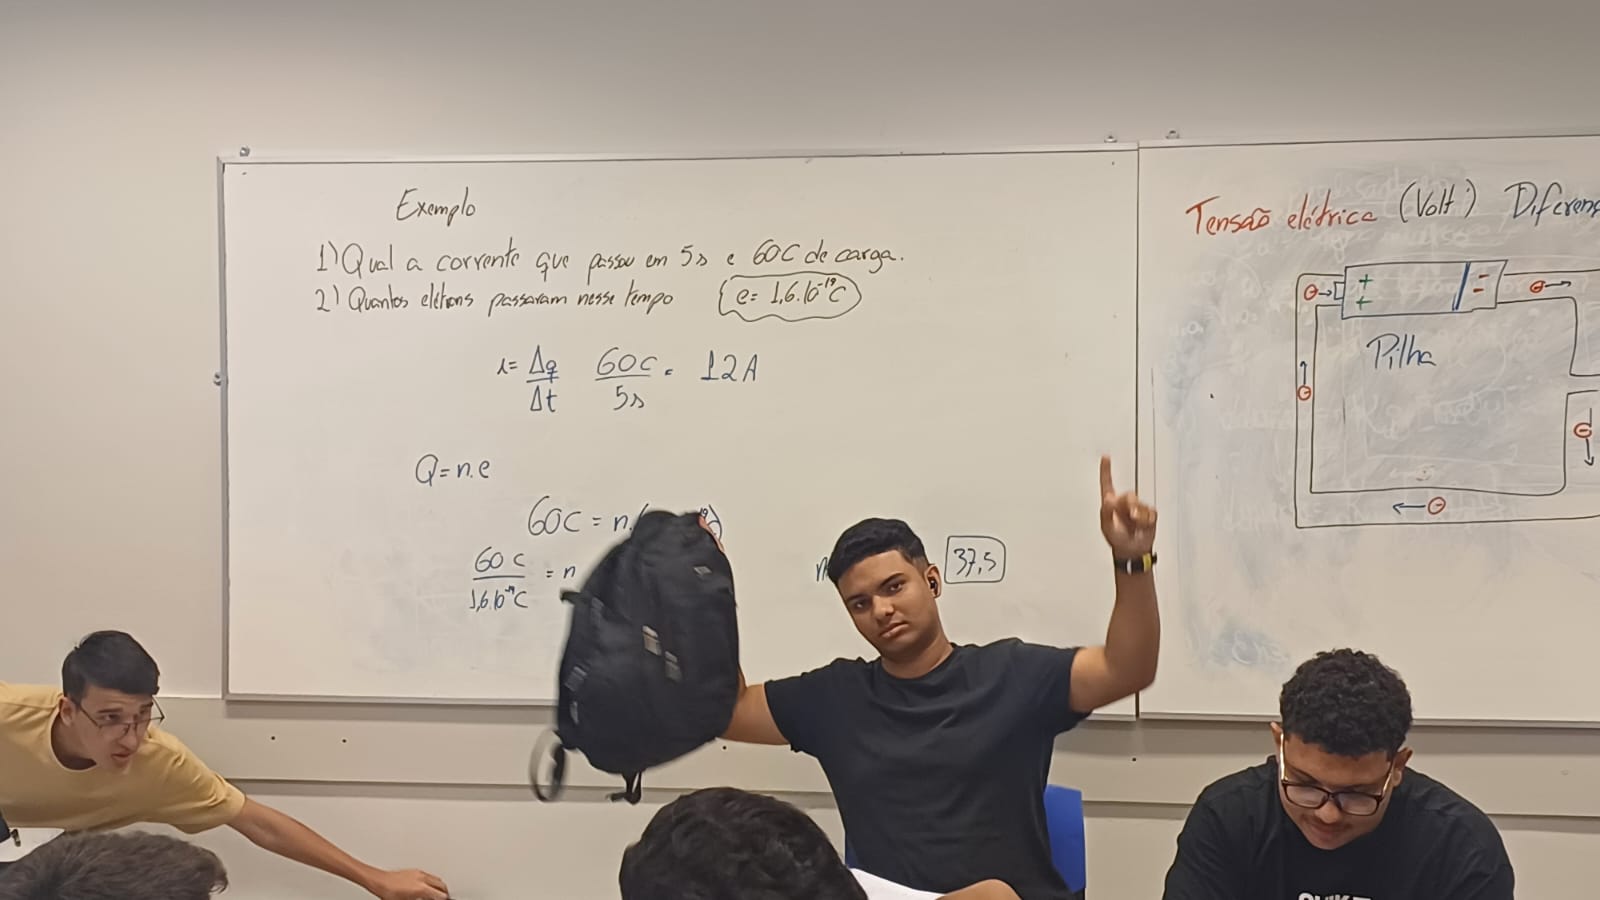 Exemplo
1) Qual a corrente que passou em 5s e 60C de carga.
2) Quantos elétrons passaram nesse tempo e= 1,6.10⁻¹⁹C
i= Δq/Δt 60C/5s = 12A
Q=n.e
60C = n.
60C/1,6.10⁻¹⁹C = n
n
37,5
Tensão elétrica (Volt)
+ -
+ -
Pilha